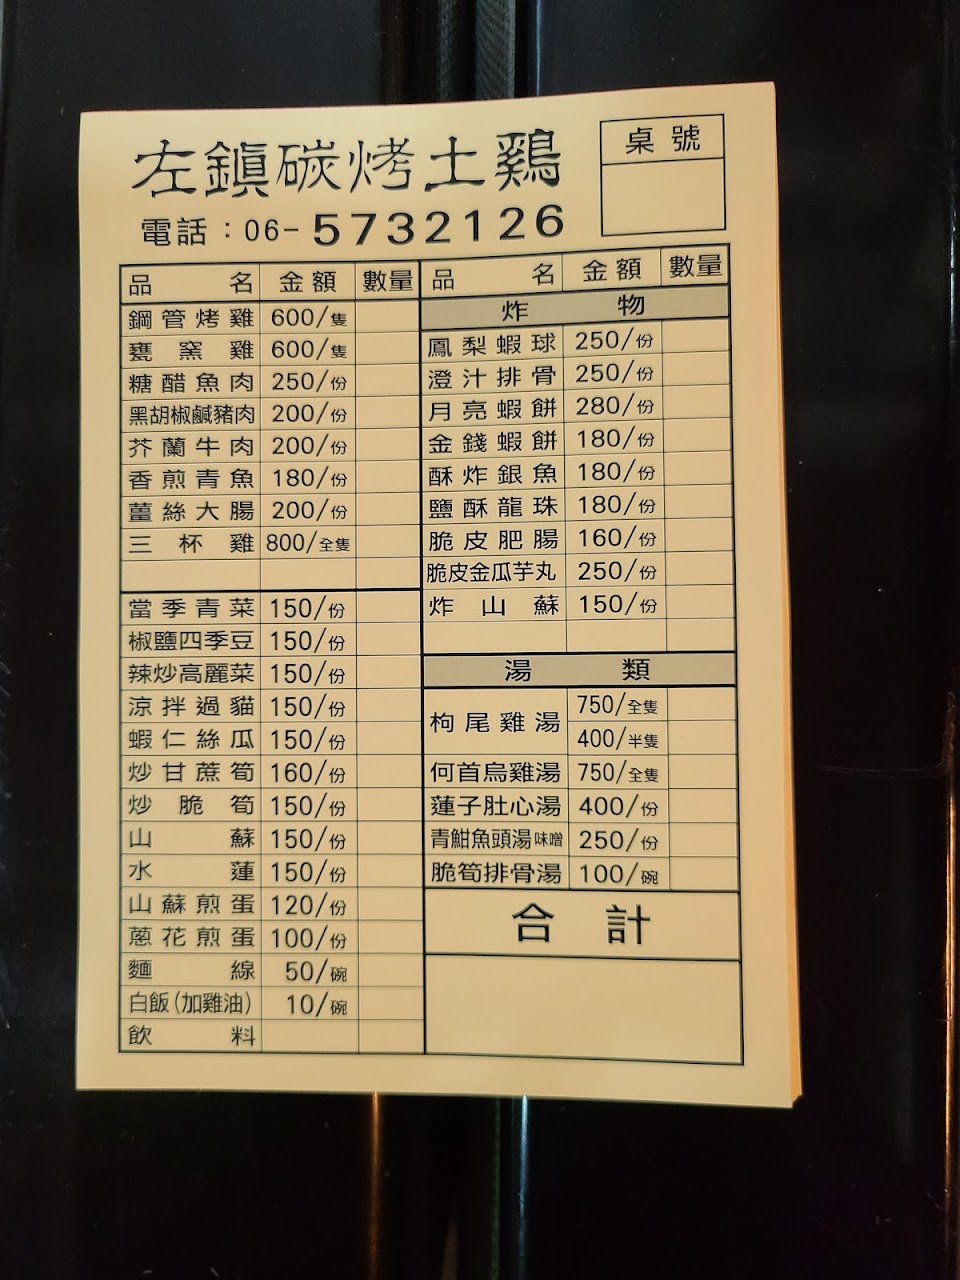 左鎮碳烤土鷄
桌號
電話：06-5732126
品名 金額 數量
鋼管烤雞 600/隻
甕窯雞 600/隻
糖醋魚肉 250/份
黑胡椒鹹豬肉 200/份
芥蘭牛肉 200/份
香煎青魚 180/份
薑絲大腸 200/份
三杯雞 800/全隻
當季青菜 150/份
椒鹽四季豆 150/份
辣炒高麗菜 150/份
涼拌過貓 150/份
蝦仁絲瓜 150/份
炒甘蔗筍 160/份
炒脆筍 150/份
山蘇 150/份
水蓮 150/份
山蘇煎蛋 120/份
蔥花煎蛋 100/份
麵線 50/碗
白飯(加雞油) 10/碗
飲料
品名 金額 數量
炸物
鳳梨蝦球 250/份
澄汁排骨 250/份
月亮蝦餅 280/份
金錢蝦餅 180/份
酥炸銀魚 180/份
鹽酥龍珠 180/份
脆皮肥腸 160/份
脆皮金瓜芋丸 250/份
炸山蘇 150/份
湯類
枸尾雞湯 750/全隻
400/半隻
何首烏雞湯 750/全隻
蓮子肚心湯 400/份
青魽魚頭湯味噌 250/份
脆筍排骨湯 100/碗
合計